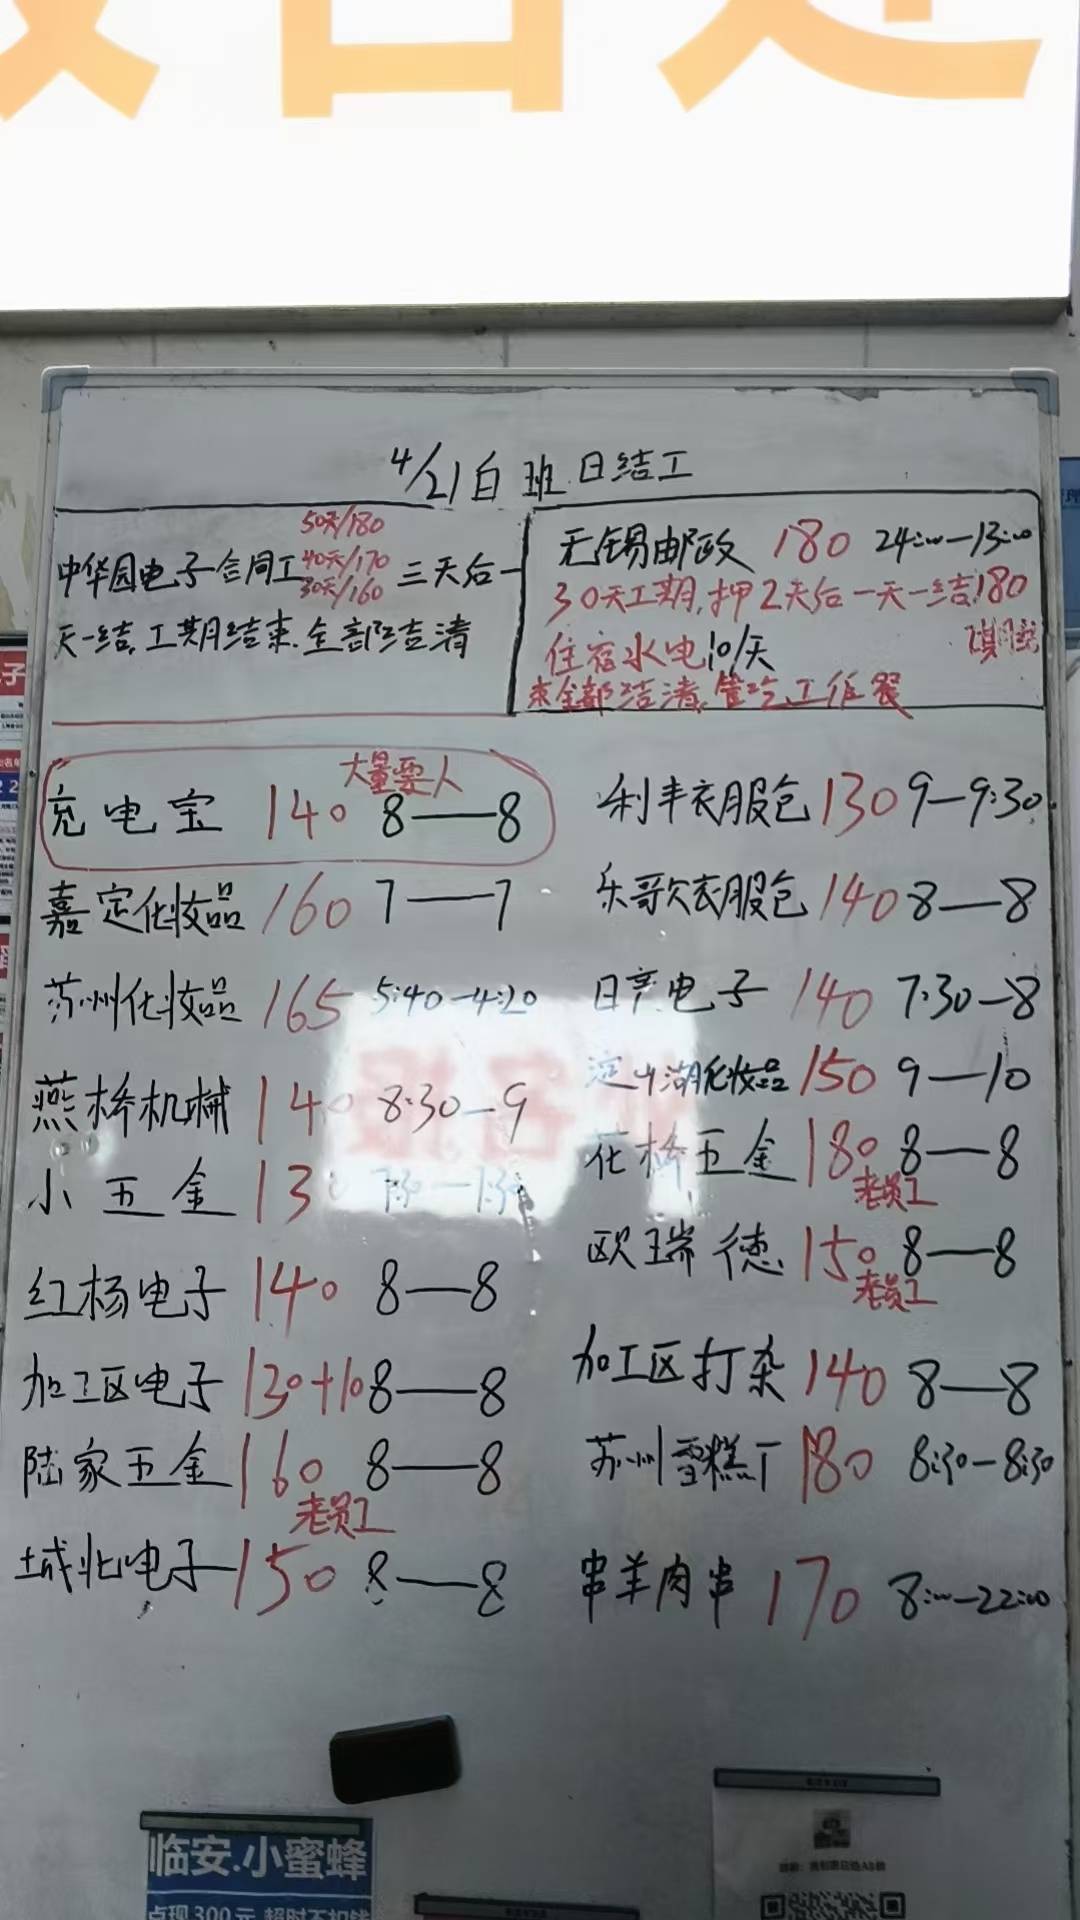 4/21白班日结工
50天/180
中华园电子合同工 40天/170 三天后一
30天/160
天一结,工期结束.全部结清
无锡邮政 180 24:00—13:00
30天工期,押2天后一天一结,180
住宿水电10/天
工期结
束全部结清,管吃工作餐
大量要人
充电宝 140 8——8
嘉定化妆品 160 7——7
苏州化妆品 165 5:40—4:20
燕桥机械 140 8:30—9
小五金 13
红杨电子 140 8—8
加工区电子 130+10 8——8
陆家五金 160 8——8
老员工
城北电子 150 8——8
利丰衣服包 130 9—9:30
乐歌衣服包 140 8—8
日产电子 140 7:30—8
淀山湖化妆品 150 9—10
花桥五金 180 8—8
老员工
欧瑞德 150 8—8
老员工
加工区打杂 140 8—8
苏州雪糕厂 180 8:30—8:30
串羊肉串 170 8:00—22:00
临安.小蜜蜂